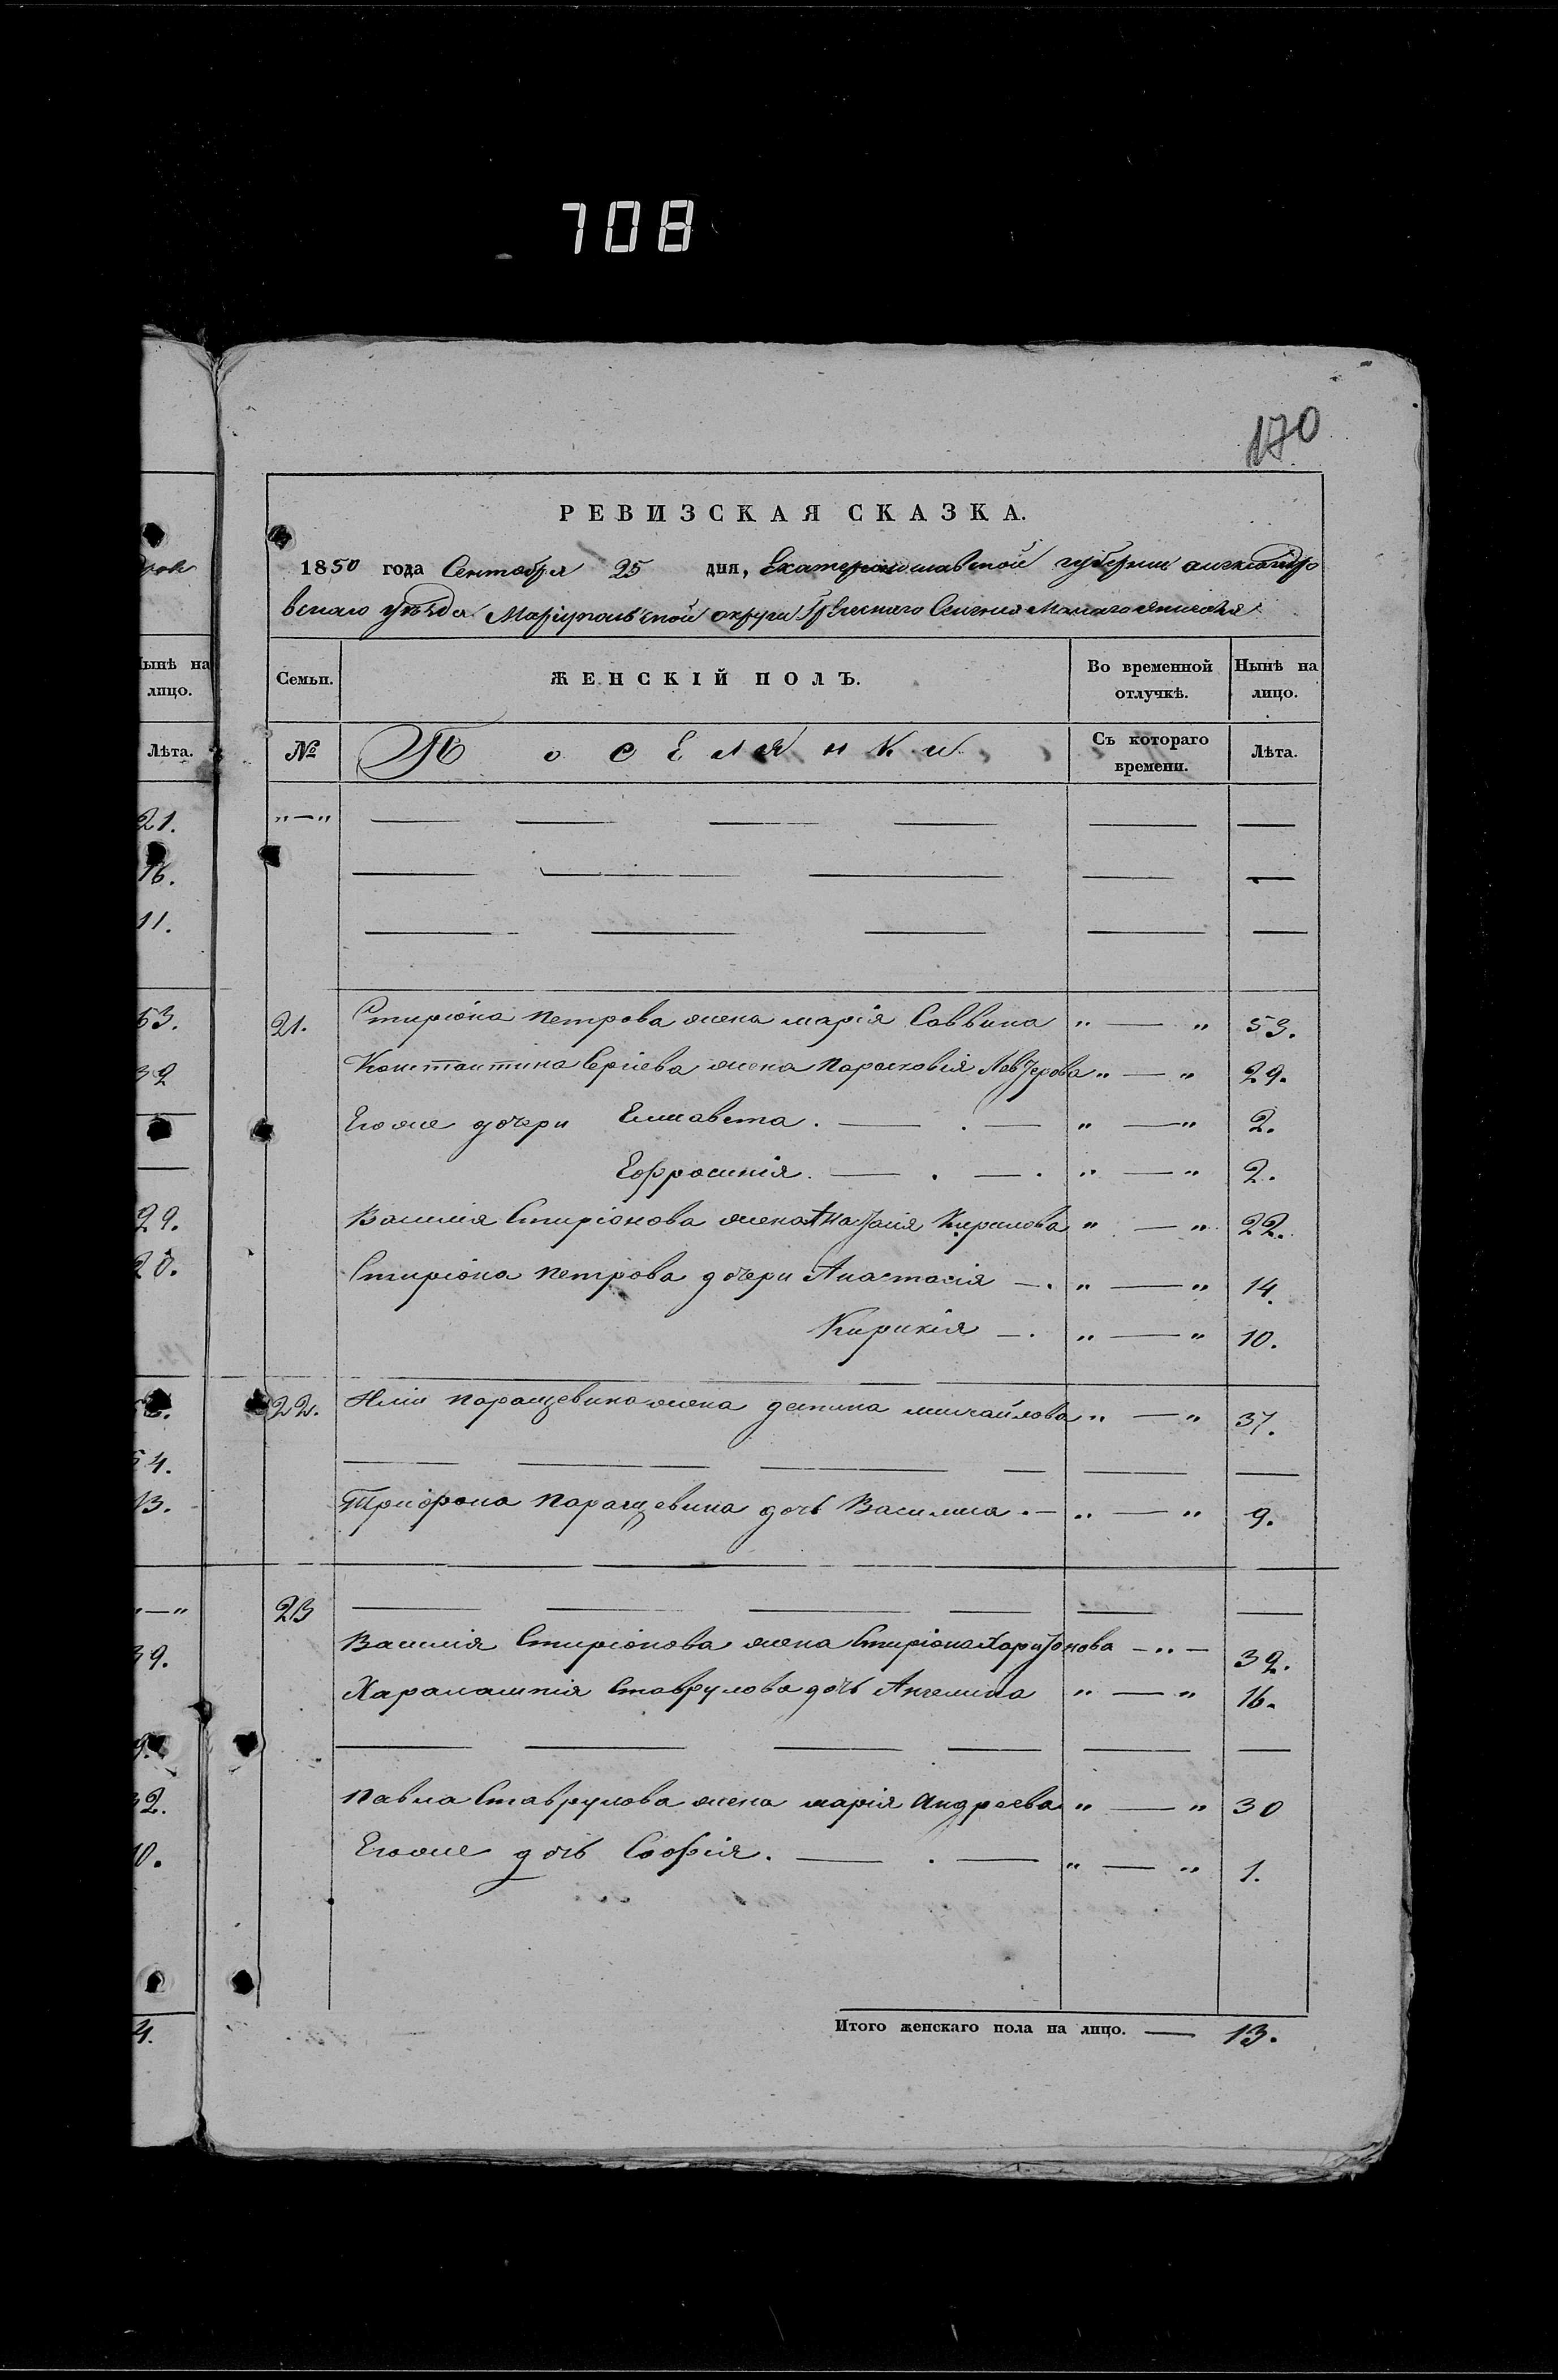 708
170
РЕВИЗСКАЯ СКАЗКА.
1850 года Сентября 25 дня, Екатеринославской губернии александро
вскаго уѣзда Маріупольской округи Греческаго Селенія Малаго янисоля
Семьи. ЖЕНСКІЙ ПОЛЪ. Во временной отлучкѣ. Нынѣ на лицо.
№ Поселянки Съ котораго времени. Лѣта.
„—„ — — — — — —
— — — — —
— — — — —
21. Стиріона петрова жена марія Саввина „ — „ 53.
Константина Сріева жена парасковія „ — „ 29.
Егоже дочери Елисавета. — . — „ — „ 2.
Ефросинія. — . — . „ — „ 2.
Василія Стиріонова жена Кирилова „ — „ 22.
Стиріона петрова дочери Анастасія — . „ — „ 14.
Кирикія — . „ — „ 10.
22. Иліи паращевина жена деспина михайлова „ — „ 37.
— — — — — —
Трифона паращевина дочь Василиса . — „ — „ 9.
23 — — — — — —
Василія Стиріонова жена Стиріона Харитонова — „ — 32.
Харалампія Ставрулова дочь Ангелина „ — „ 16.
— — — — — —
павла Ставрулова жена марія андреева „ — „ 30
Егоже дочь Софія. — . — „ — „ 1.
Итого женскаго пола на лицо. — 13.
Нынѣ на
лицо.
Лѣта.
21.
16.
11.
53.
32
29.
20.
54.
13.
„—„
39.
32.
10.
4.